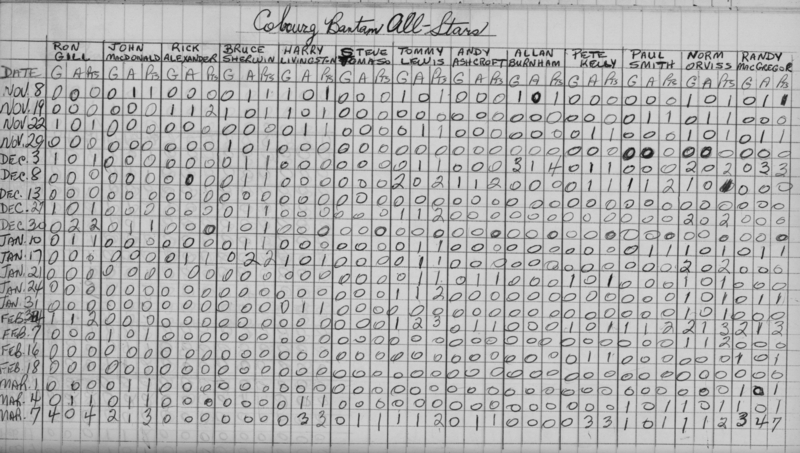 Cobourg Bantam All-Stars
RON GILL JOHN MCDONALD RICK ALEXANDER BRUCE SHERWIN HARRY LIVINGSTON STEVE TOMASO TOMMY LEWIS ANDY ASHCROFT ALLAN BURNHAM PETE KELLY PAUL SMITH NORM ORVISS RANDY MACGREGOR
DATE G A Pts G A Pts G A Pts G A Pts G A Pts G A Pts G A Pts G A Pts G A Pts G A Pts G A Pts G A Pts G A Pts
NOV. 8 0 0 0 0 1 1 0 0 0 0 1 1 1 0 1 0 0 0 1 0 1 0 0 0 1 0 1 0 0 0 0 0 0 1 0 1 0 1 1
NOV. 19 0 0 0 0 0 0 1 1 2 1 0 1 1 0 1 0 0 0 0 0 0 0 0 0 0 0 0 0 0 0 0 1 1 0 1 1 0 0 0
NOV. 22 1 0 1 0 0 0 0 0 0 0 0 0 0 1 1 0 0 0 0 1 1 0 0 0 0 0 0 0 1 1 0 0 0 1 0 1 0 1 1
NOV. 29 0 0 0 0 0 0 0 0 0 1 0 1 0 0 0 0 0 0 0 0 0 0 0 0 0 0 0 0 0 0 0 0 0 0 0 0 0 0 0
DEC. 3 1 0 1 0 0 0 0 0 0 0 1 1 0 0 0 0 0 0 0 1 1 0 0 0 3 1 4 0 1 1 0 0 0 2 0 2 0 3 3
DEC. 8 0 0 0 0 0 0 0 0 0 0 1 1 0 0 0 0 0 0 2 0 2 1 1 2 0 0 0 0 1 1 1 1 2 1 0 1 0 0 0
DEC. 13 0 0 0 0 0 0 0 0 0 0 0 0 0 0 0 0 0 0 0 0 0 0 0 0 0 0 0 0 0 0 0 0 0 0 0 0 0 0 0
DEC. 27 1 0 1 0 0 0 0 0 0 0 1 1 0 0 0 0 0 0 1 1 2 0 0 0 0 0 0 0 0 0 0 0 0 2 0 2 0 0 0
DEC. 30 0 2 2 0 1 1 0 0 0 1 0 1 0 0 0 0 0 0 0 0 0 0 0 0 0 0 0 0 0 0 0 0 0 0 0 0 0 0 0
JAN. 10 0 1 1 0 0 0 0 0 0 0 1 1 0 0 0 0 0 0 0 1 1 0 0 0 0 0 0 0 0 0 0 1 1 1 0 1 0 1 1
JAN. 17 0 0 0 0 0 0 0 1 1 0 2 2 1 0 1 0 0 0 0 1 1 0 0 0 0 0 0 0 0 0 0 0 0 2 0 2 0 0 0
JAN. 21 0 0 0 0 0 0 0 0 0 0 0 0 0 0 0 0 0 0 0 1 1 0 1 1 0 0 0 1 0 1 0 0 0 1 0 1 0 0 0
JAN. 24 0 0 0 0 0 0 0 0 0 0 0 0 0 0 0 0 0 0 1 1 2 0 0 0 0 0 0 0 0 0 0 0 0 1 0 1 0 1 1
JAN. 31 0 0 0 0 0 0 0 0 0 0 0 0 0 1 1 0 0 0 0 0 0 0 0 0 0 0 0 0 0 0 0 0 0
FEB. 1 1 2 0 0 0 0 0 0 0 0 0 0 0 0 0 0 0 1 2 3 0 1 1 0 0 0 1 0 1 1 1 2 2 1 3 2 1 3
FEB. 7 0 0 0 1 0 1 0 0 0 0 0 0 0 0 0 0 0 0 0 0 0 0 0 0 0 0 0 0 0 0 0 0 0 1 1 2 0 0 0
FEB. 16 0 0 0 0 0 0 0 0 0 0 0 0 0 0 0 0 0 0 0 0 0 0 0 0 0 0 0 0 1 1 0 0 0 0 0 0 1 0 1
FEB. 18 0 0 0 0 0 0 0 0 0 0 0 0 0 0 0 0 0 0 0 0 0 0 0 0 0 0 0 0 0 0 0 0 0 0 0 0 0 0 0
MAR. 1 0 0 0 0 1 1 0 0 0 0 0 0 0 0 0 0 0 0 0 0 0 0 0 0 0 0 0 0 0 0 0 0 0 0 0 0 1 0 1
MAR. 4 0 1 1 0 1 1 0 0 0 0 0 0 0 1 1 0 0 0 0 0 0 0 0 0 0 0 0 0 0 0 1 0 1 1 0 1 1 0 1
MAR. 7 4 0 4 2 1 3 0 0 0 0 0 0 0 3 3 0 1 1 1 1 2 0 1 1 0 0 0 0 3 3 1 0 1 1 1 2 3 4 7